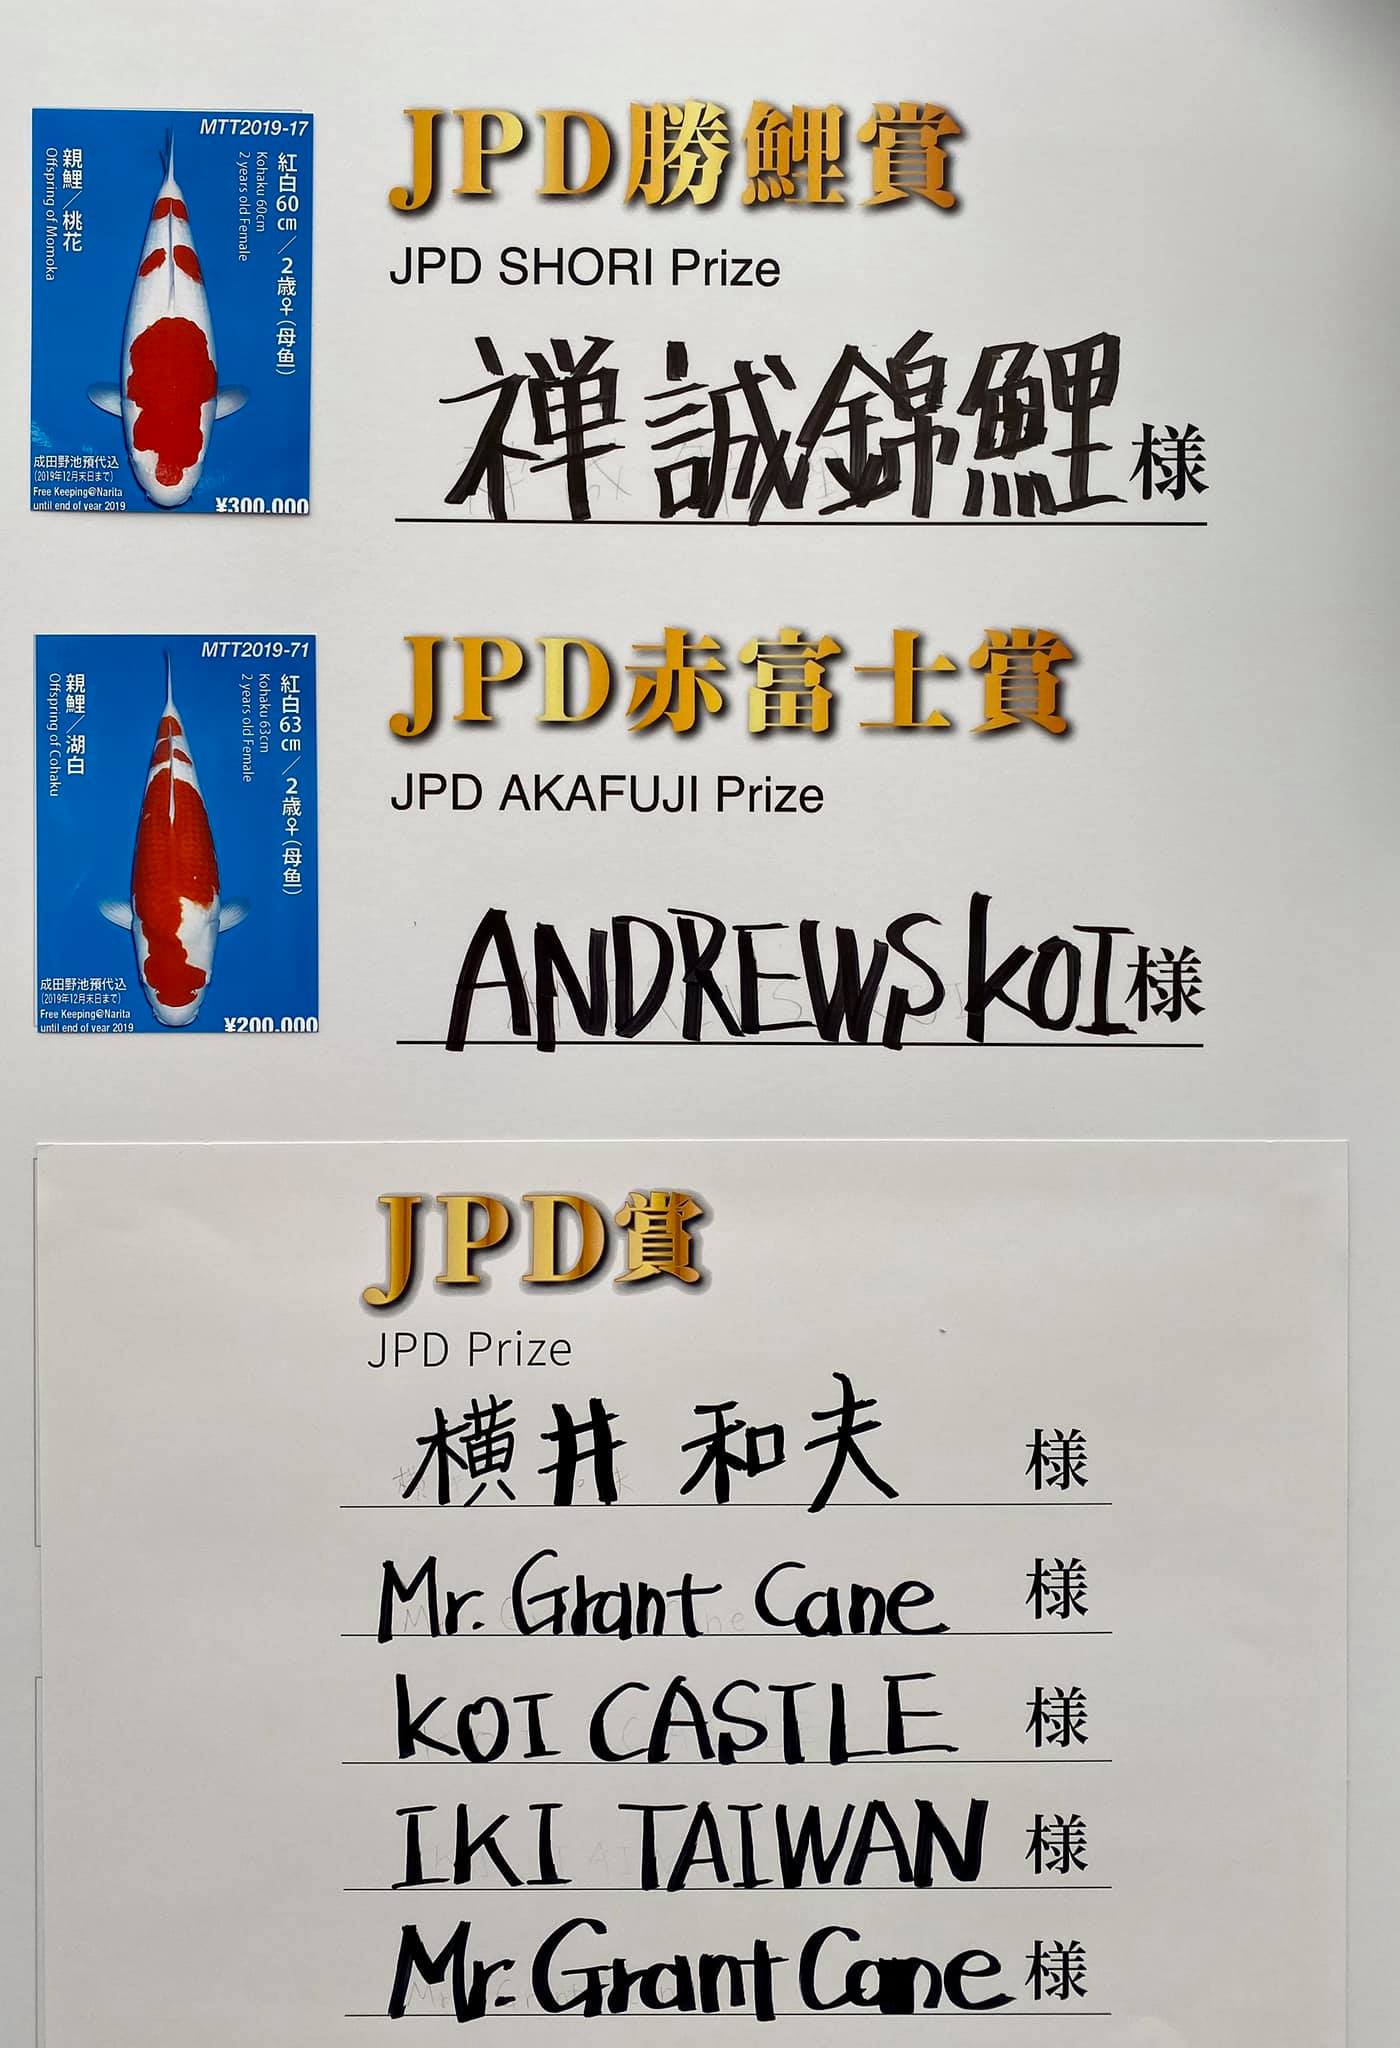 MTT2019-17
紅白60㎝／2歳♀(母魚)
Kohaku 60cm
2 years old Female
親鯉／桃花
Offspring of Momoka
成田野池預代込
(2019年12月末日まで)
Free Keeping@Narita
until end of year 2019
¥300,000
JPD勝鯉賞
JPD SHORI Prize
禅誠錦鯉様
MTT2019-71
紅白63㎝／2歳♀(母魚)
Kohaku 63cm
2 years old Female
親鯉／湖白
Offspring of Cohaku
成田野池預代込
(2019年12月末日まで)
Free Keeping@Narita
until end of year 2019
¥200,000
JPD赤富士賞
JPD AKAFUJI Prize
ANDREWS KOI様
JPD賞
JPD Prize
横井 和夫 様
Mr. Grant Cane 様
KOI CASTLE 様
IKI TAIWAN 様
Mr. Grant Cane 様